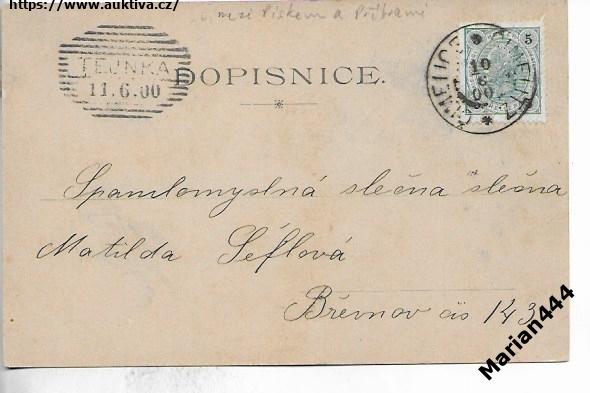 https://www.auktiva.cz/
mezi Pískem a Příbramí
TEJNKA
11.6.00
DOPISNICE.
5
10
6
00
Spanilomyslná slečna slečna
Matilda Šéflová
Břevnov čís 143
Marian444